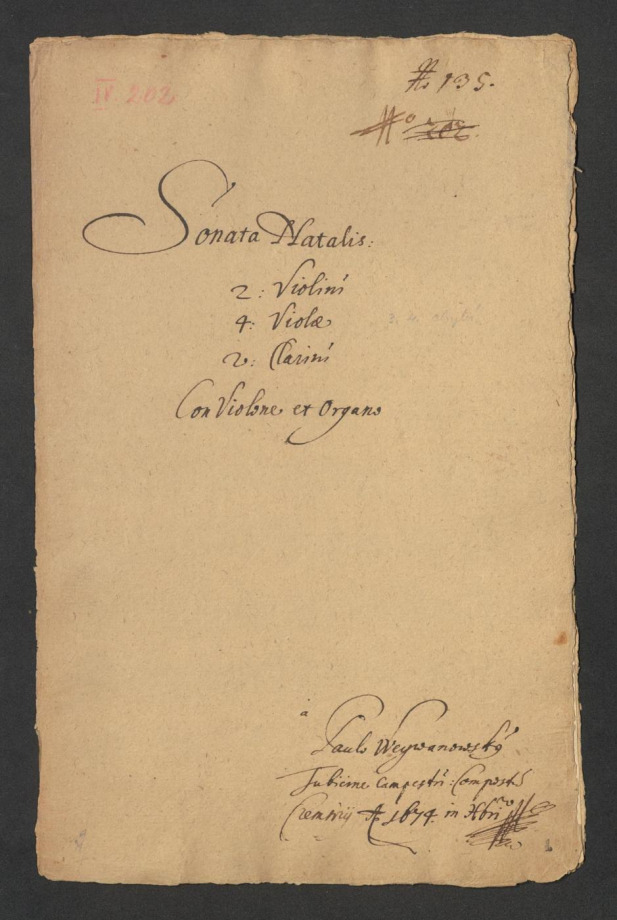 IV 202
No 135.
No 202.
Sonata Natalis:
2: Violini
4: Violæ
2: Clarini
Con Violone et Organo
a
Paulo Weywanowský
Tubicine campestri: Composta
Cremsirij Ao 1674. in Xbri